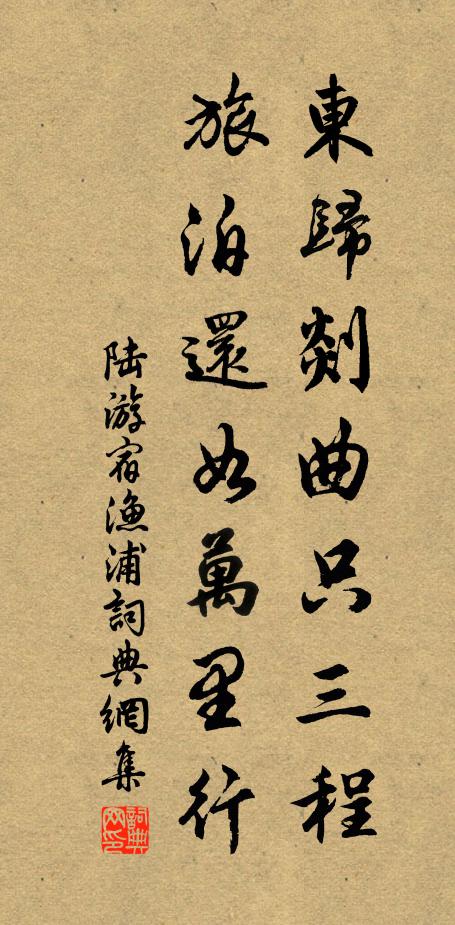 東歸剡曲只三程
旅泊還如萬里行
陸游宿漁浦詞典網集
詞典网印